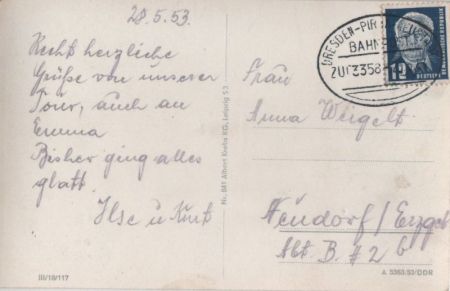 28.5.53.
Recht herzliche
Grüße von unserer
Tour, auch an
Emma
Bisher ging alles
glatt.
Ilse u. Kurt
Nr. 841 Albert Krebs KG, Leipzig S 3
DRESDEN-PIR
BAHNPOST
ZUG 3358
12
Frau
Anna Weigelt
Neudorf/Erzgeb
Abt B. # 2 b
III/18/117
A 5363/53/DDR